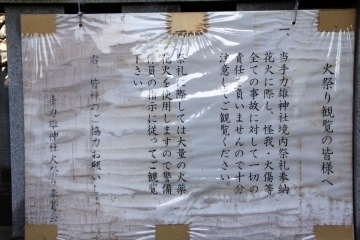 火祭り観覧の皆様へ
一、
当手力雄神社境内祭礼奉納
花火に際し、怪我、火傷等
全ての事故に対して一切の
責任を負いませんので十分
注意してご観覧ください。
祭礼に際しては大量の火薬
花火を使用しますので警備
係員の指示に従ってご観覧
下さい。
皆様のご協力お願い
手力雄神社火祭り